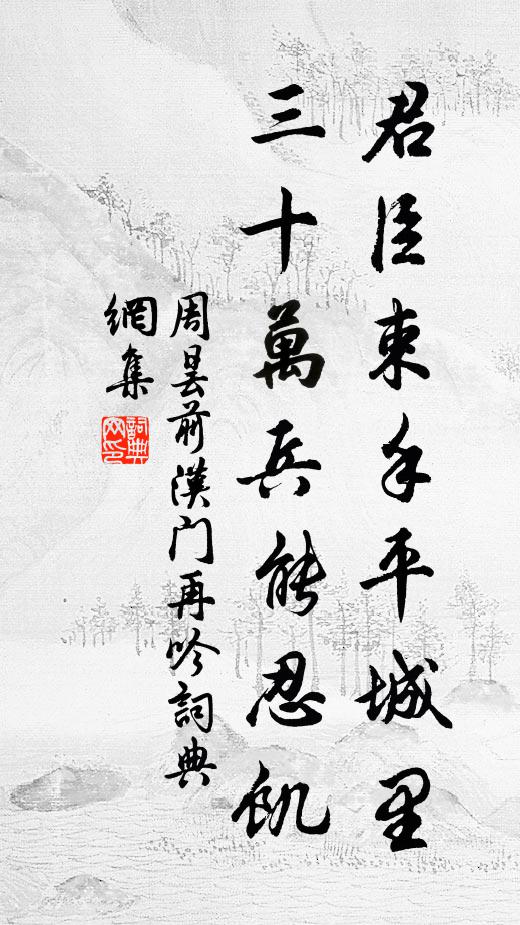 君臣束手平城里
三十萬兵能忍飢
周昙前漢门再吟詞典
網集
詞典
网印